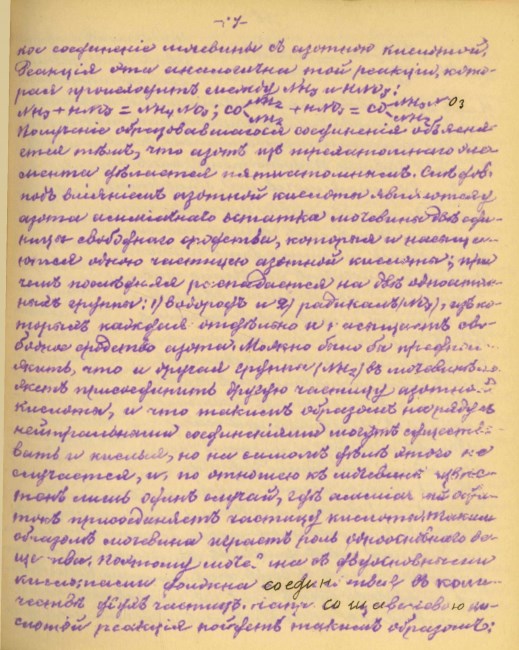 -7-
кое соединеніе мочевины съ азотною кислотой.
Реакція эта аналогична той реакціи, кото-
рая происходитъ между NH₃ и HNO₃:
NH₃ + HNO₃ = NH₄NO₃; CO NH₂ NH₂ + HNO₃ = CO NH₃NO₃ NH₂
Полученіе образовавшагося соединенія объясня-
ется тѣмъ, что азотъ изъ трехатомнаго эле-
мента дѣлается пятиатомнымъ. Слѣдов.
подъ вліяніемъ азотной кислоты являются у
азота амміачнаго остатка мочевины двѣ еди-
ницы свободнаго сродства, которыя и насыща-
ются одною частицею азотной кислоты; при
чемъ послѣдняя распадается на двѣ одноатом-
ныхъ группы: 1) водородъ и 2) радикалъ (NO₃), изъ ко-
торыхъ каждая отдѣльно и насыщаетъ сво-
бодное сродство азота. Можно было бы предпо-
ложить, что и другая группа (NH₂) въ мочевинѣ мо-
жетъ присоединить другую частицу азотной
кислоты, и что такимъ образомъ наряду съ
нейтральными соединеніями могутъ существо-
вать и кислыя, но на самомъ дѣлѣ этого не
случается, и по отношею къ мочевинѣ извѣс-
тенъ лишь одинъ случай, гдѣ амміачный оста-
токъ присоединяетъ частицу кислоты. Такимъ
образомъ мочевина играетъ роль одноосновнаго ве-
щества. Поэтому мочевина съ двухосновными
кислотами должна соединяться въ коли-
чествѣ двухъ частицъ. Напр. со щавелевою ки-
слотой реакція пойдетъ такимъ образомъ: